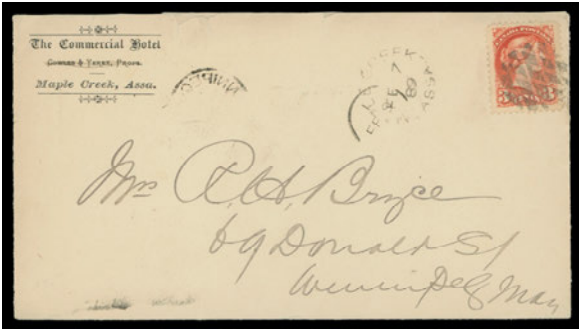 The Commercial Hotel
Maple Creek, Assa.
CREEK
7
89
ASSA
Mrs R. H. Bryce
69 Donald St
Winnipeg Man